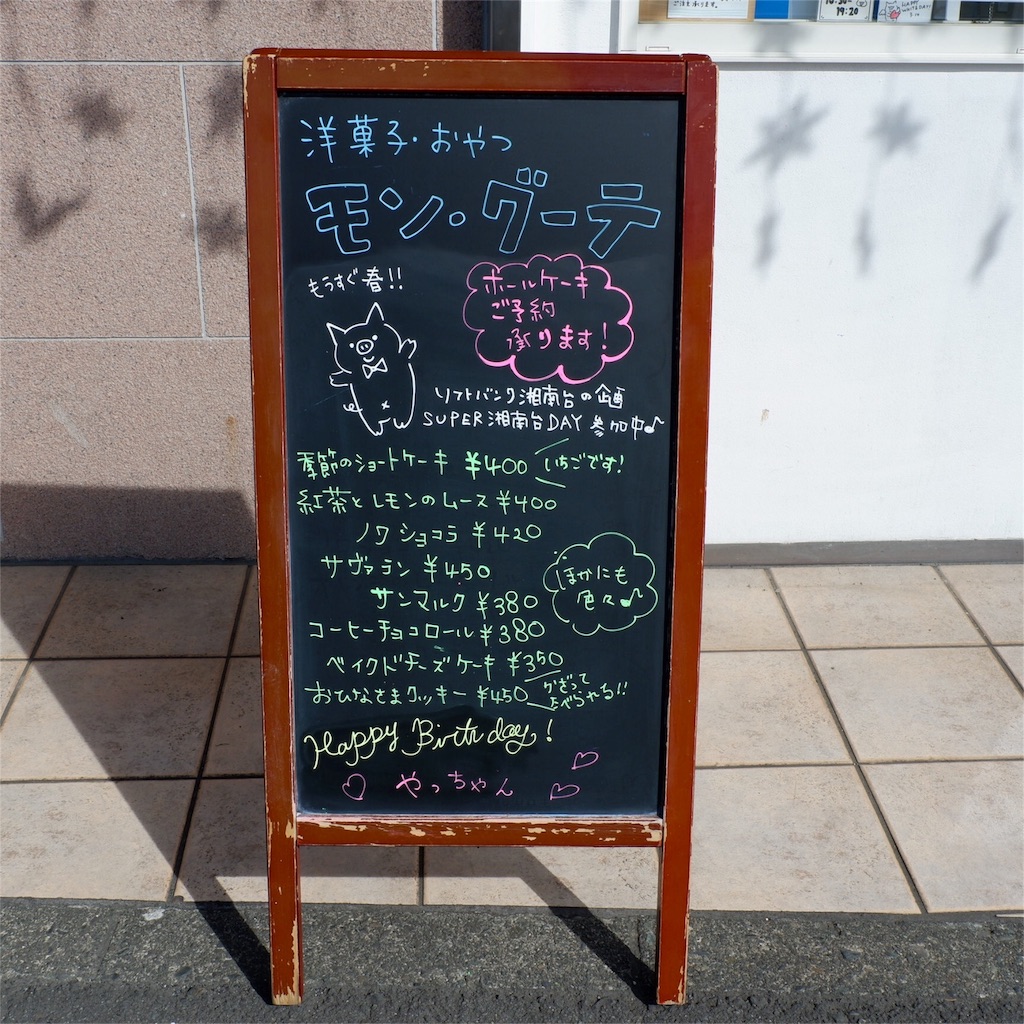 ご注文承ります。
19:20
HAPPY
WHITE DAY!
3.14
洋菓子・おやつ
モン・グーテ
もうすぐ春!!
ホールケーキ
ご予約
承ります!
ソフトバンク湘南台の企画
SUPER湘南台DAY 参加中♪
季節のショートケーキ ¥400 いちごです!
紅茶とレモンのムース ¥400
ノワショコラ ¥420
サヴァラン ¥450
サンマルク ¥380
ほかにも
色々♪
コーヒーチョコロール ¥380
ベイクドチーズケーキ ¥350
おひなさまクッキー ¥450 かざって
たべられる!!
Happy Birthday!
やっちゃん